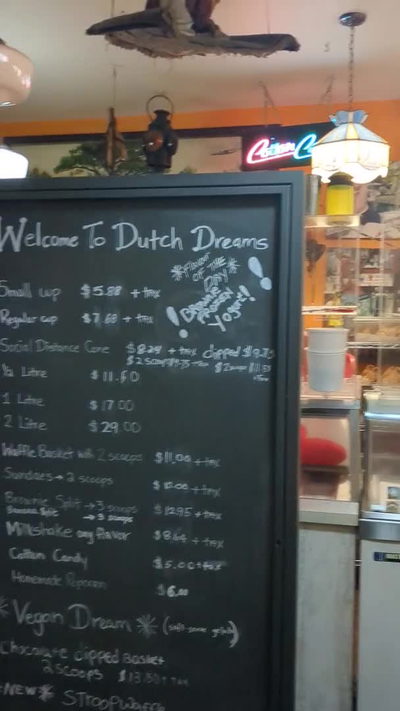 Welcome To Dutch Dreams
*Flavor
OF THE
DAY*
Frozen
Yogurt!!
Small cup $5.88 + tax
Regular cup $7.68 + tax
Social Distance Cone $8.24 + tax dipped
2 scoops $9.75 + tax 2 scoops
½ Litre $11.60
1 Litre $17.00
2 Litre $29.00
Waffle Basket with 2 scoops $11.00 + tax
Sundaes → 2 scoops + tax
Brownie Split → 3 scoops $12.95 + tax
Banana Split → 3 scoops
Milkshake any flavor $8.64 + tax
Cotton Candy $5.00 + tax
Homemade Popcorn $6.00
*Vegan Dream* (soft-serve gelato)
Chocolate dipped Basket
2 scoops $13.50 + tax
*NEW* STROOPWAFFLE